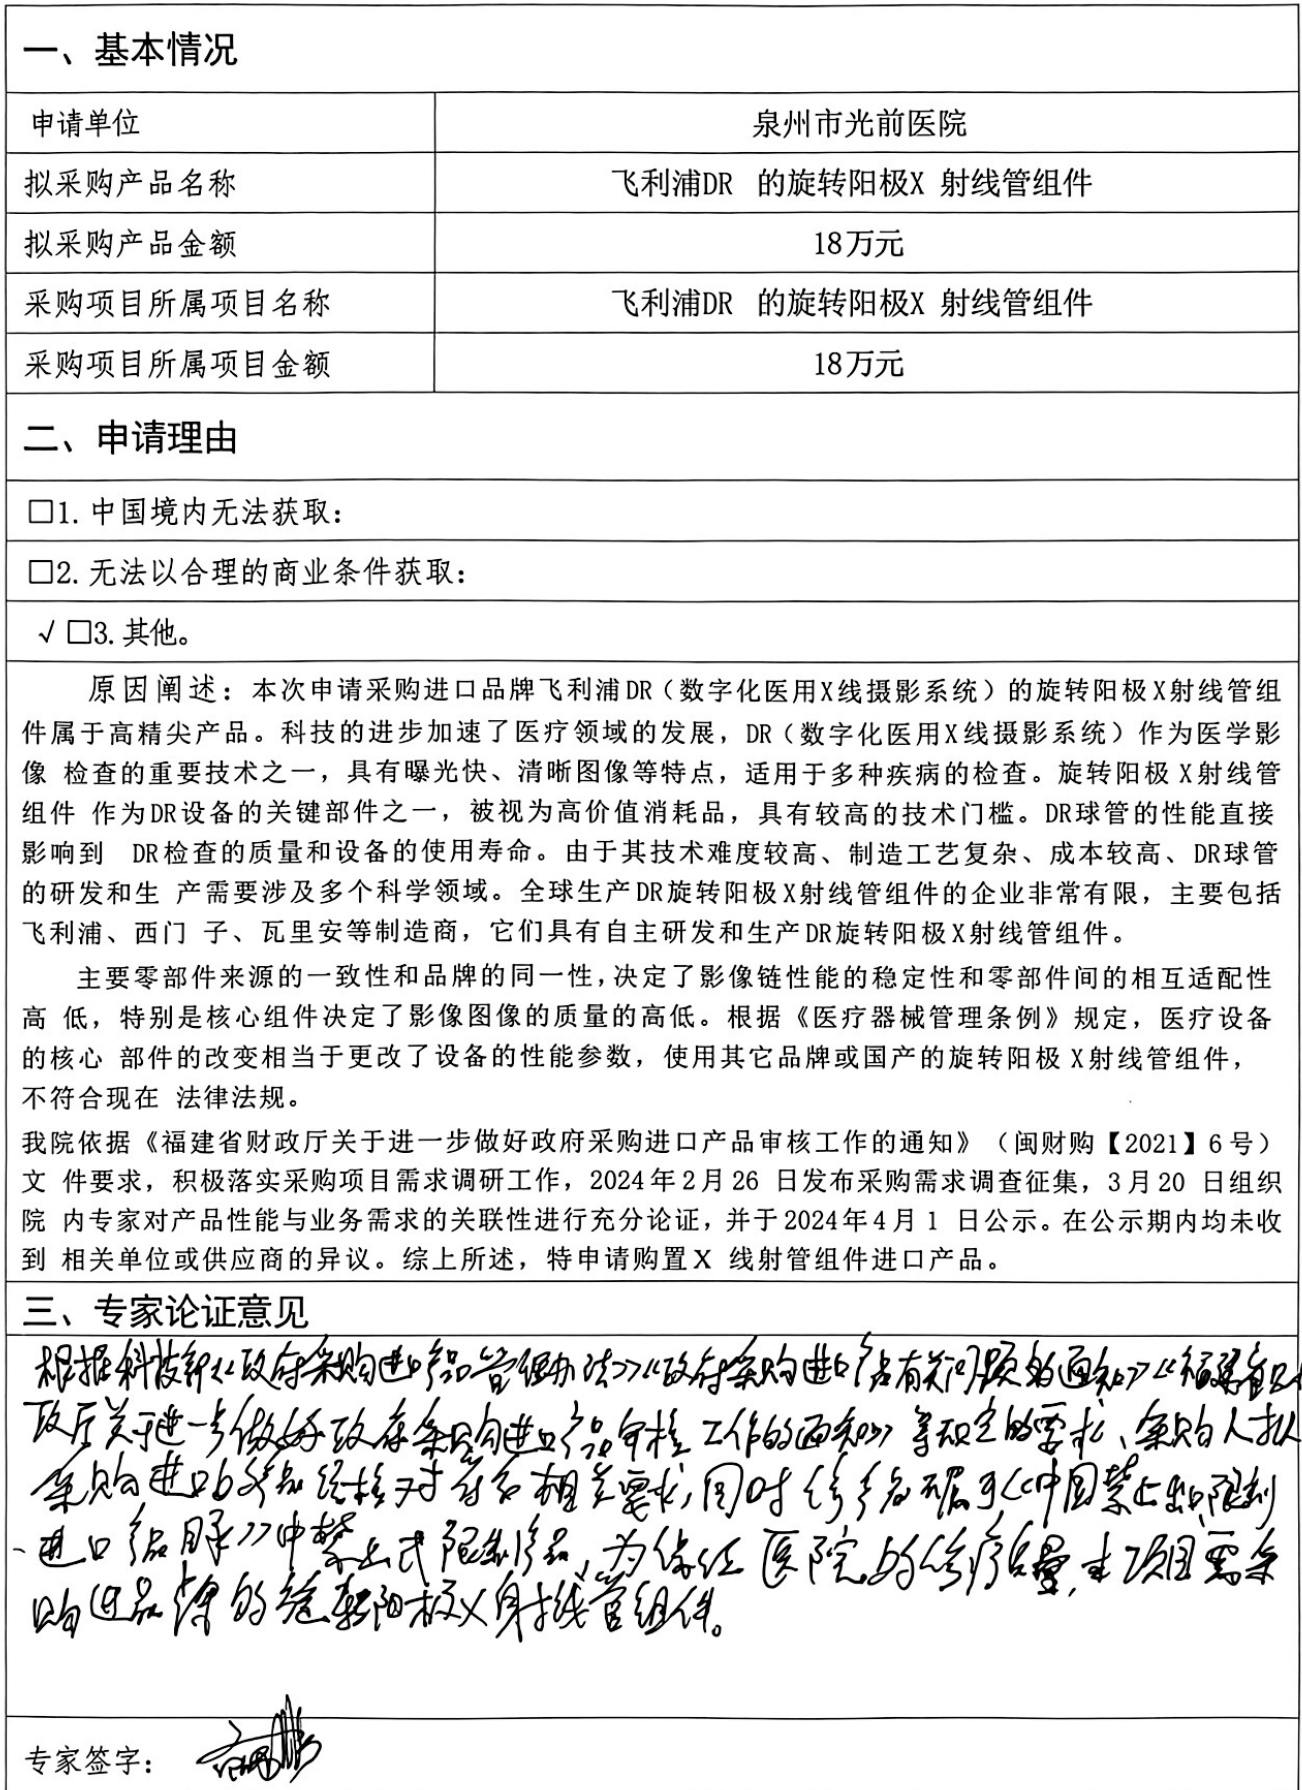 一、基本情况
申请单位 泉州市光前医院
拟采购产品名称 飞利浦DR 的旋转阳极X 射线管组件
拟采购产品金额 18万元
采购项目所属项目名称 飞利浦DR 的旋转阳极X 射线管组件
采购项目所属项目金额 18万元
二、申请理由
□1. 中国境内无法获取：
□2. 无法以合理的商业条件获取：
√ □3. 其他。
原因阐述：本次申请采购进口品牌飞利浦DR（数字化医用X线摄影系统）的旋转阳极X射线管组
件属于高精尖产品。科技的进步加速了医疗领域的发展，DR（数字化医用X线摄影系统）作为医学影
像 检查的重要技术之一，具有曝光快、清晰图像等特点，适用于多种疾病的检查。旋转阳极 X射线管
组件 作为DR设备的关键部件之一，被视为高价值消耗品，具有较高的技术门槛。DR球管的性能直接
影响到 DR检查的质量和设备的使用寿命。由于其技术难度较高、制造工艺复杂、成本较高、DR球管
的研发和生 产需要涉及多个科学领域。全球生产DR旋转阳极X射线管组件的企业非常有限，主要包括
飞利浦、西门 子、瓦里安等制造商，它们具有自主研发和生产DR旋转阳极X射线管组件。
主要零部件来源的一致性和品牌的同一性，决定了影像链性能的稳定性和零部件间的相互适配性
高 低，特别是核心组件决定了影像图像的质量的高低。根据《医疗器械管理条例》规定，医疗设备
的核心 部件的改变相当于更改了设备的性能参数，使用其它品牌或国产的旋转阳极 X射线管组件，
不符合现在 法律法规。
我院依据《福建省财政厅关于进一步做好政府采购进口产品审核工作的通知》（闽财购【2021】6号）
文 件要求，积极落实采购项目需求调研工作，2024年2月26 日发布采购需求调查征集，3月20 日组织
院 内专家对产品性能与业务需求的关联性进行充分论证，并于2024年4月1 日公示。在公示期内均未收
到 相关单位或供应商的异议。综上所述，特申请购置X 线射管组件进口产品。
三、专家论证意见
根据《政府采购进口产品管理办法》《政府采购进口产品有关问题的通知》《福建省财
政厅关于进一步做好政府采购进口产品审核工作的通知》等规定的要求、采购人拟
采购进口 经核对符合相关要求，同时 《中国禁止 限制
进口 目录》中禁止或限制产品、为保证医院的诊疗质量，本项目需采
购进品牌的旋转阳极X射线管组件。
专家签字：